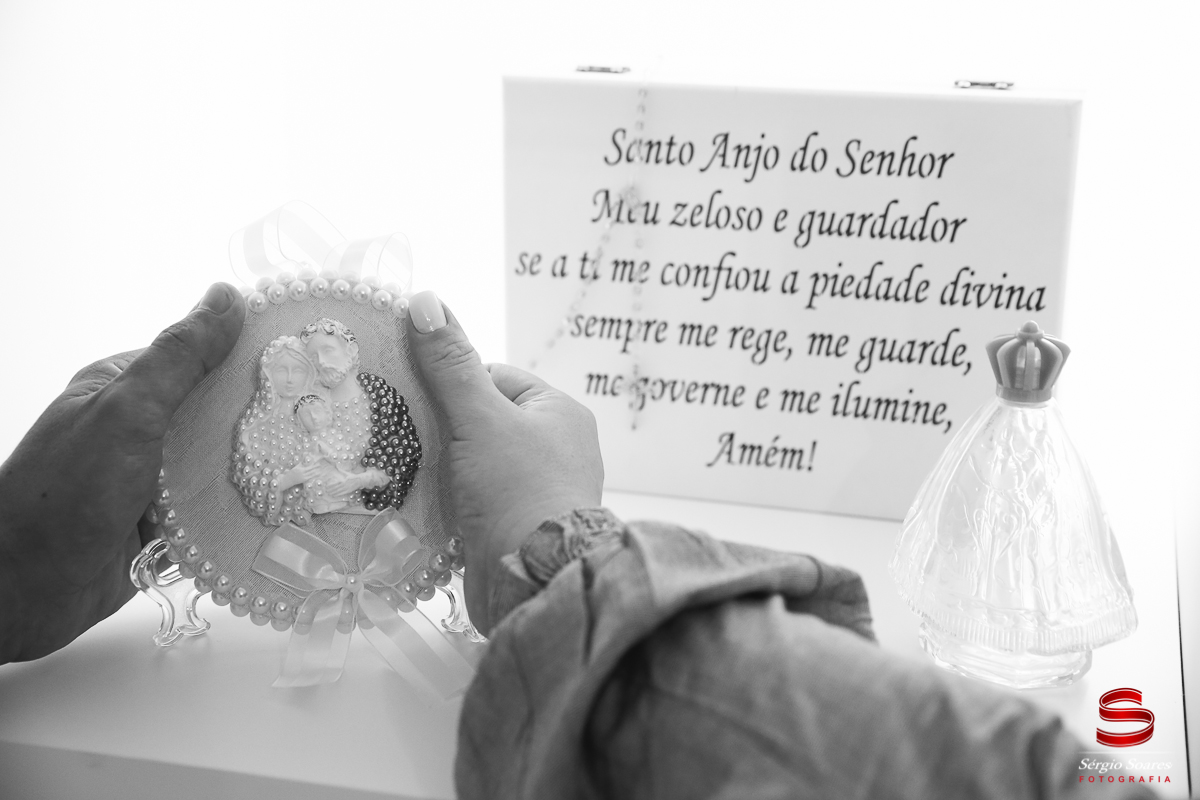 Santo Anjo do Senhor
Meu zeloso e guardador
se a ti me confiou a piedade divina
sempre me rege, me guarde,
me governe e me ilumine,
Amém!
Sérgio Soares
FOTOGRAFIA